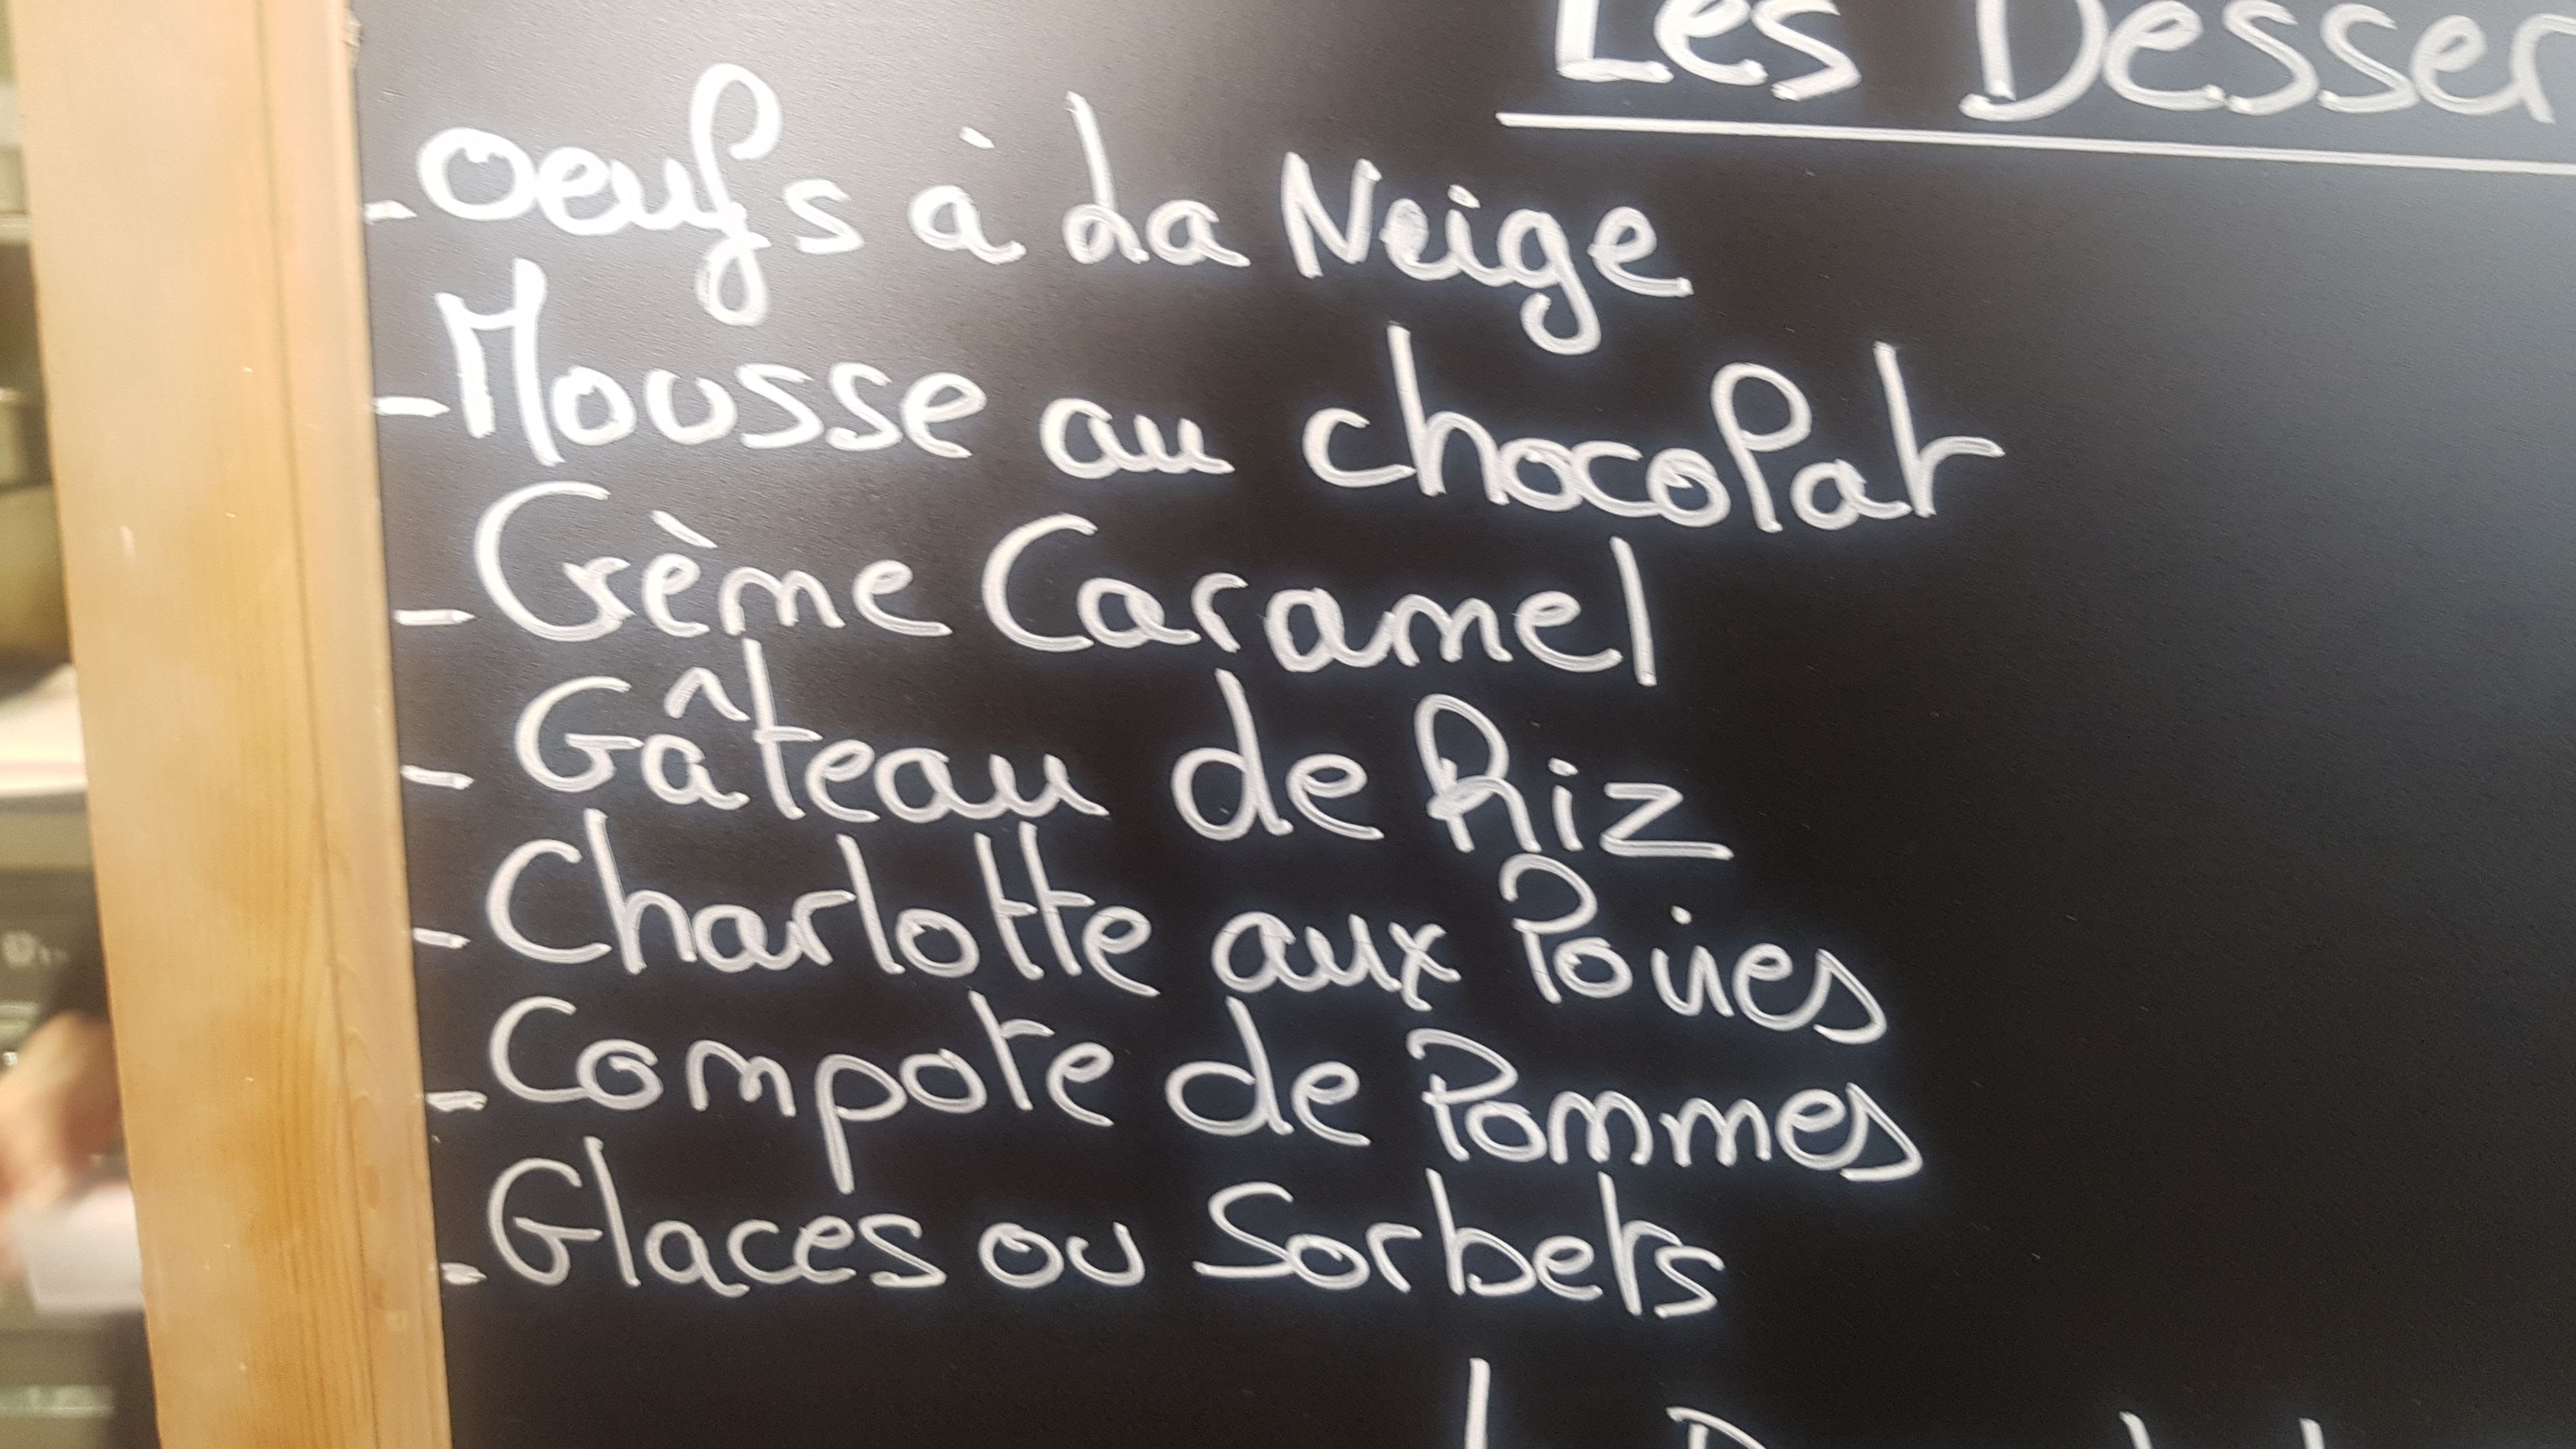 Les Desser
- Oeufs à La Neige
- Mousse au chocolat
- Crème Caramel
- Gâteau de Riz
- Charlotte aux Poires
- Compote de Pommes
- Glaces ou Sorbets